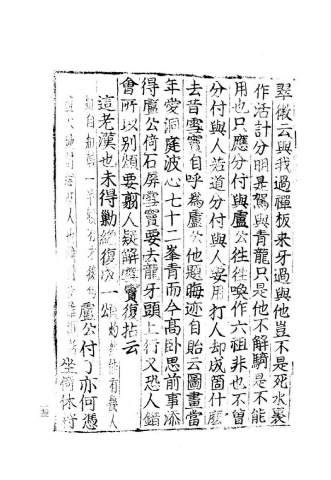 翠微云與我過禪板來牙過與他豈不是死水裏
作活計分明是駕與青龍只是他不解騎是不能
用也只應分付與盧公往往喚作六祖非也不曾
分付與人若道分付與人要用打人却成箇什麼
去昔雪竇自呼為盧公他題晦迹自貽云圖畫當
年愛洞庭波心七十二峯青而今高卧思前事添
得盧公倚石屏雪竇要去龍牙頭上行又恐人錯
會所以別頌要翦人疑解雪竇復拈云
這老漢也未得勦絕復成一頌
盧公付了亦何憑
坐倚休將